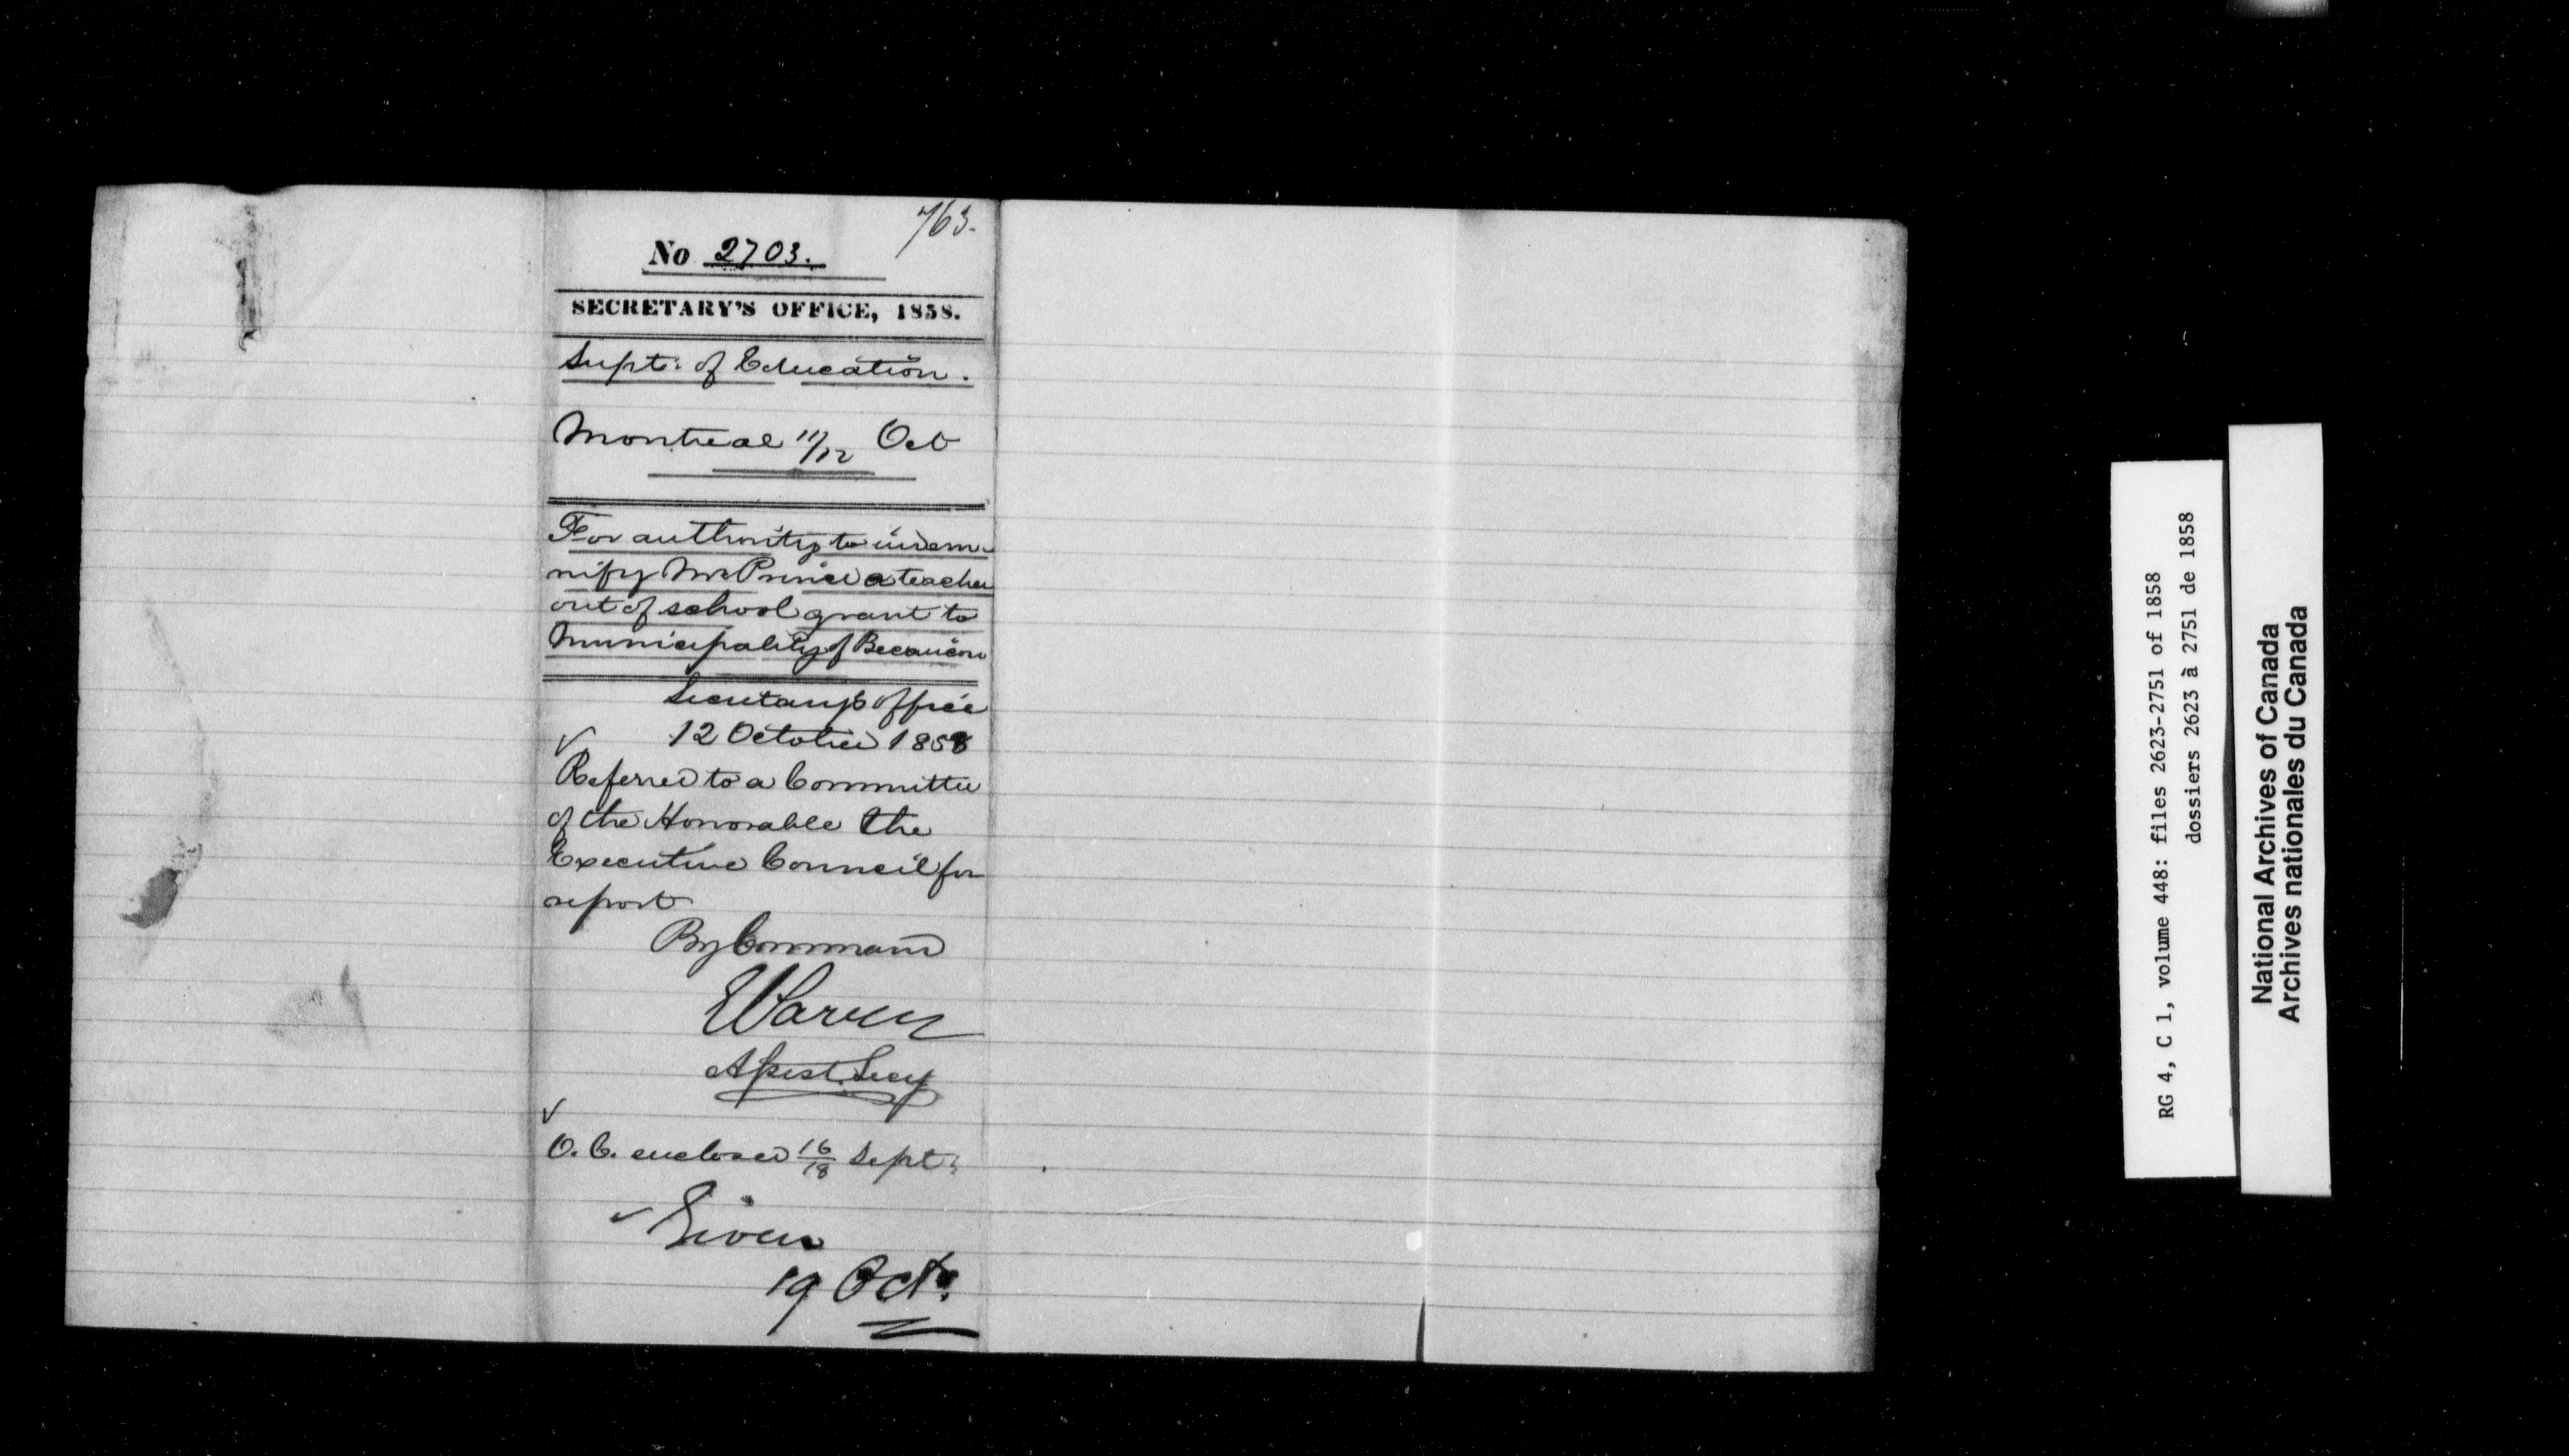 763.
No 2703.
SECRETARY'S OFFICE, 1858.
Supt: of Education.
Montreal 11/12 Oct
For authority to indem-
nify Mr Prince a teacher
out of school grant to
Municipality of Becancon
Secretary's Office
✓ 12 October 1858
Referred to a Committee
of the Honorable the
Executive Council for
report
By Command
E Parent
Assist. Secy
✓
O. C. enclosed 16/18 Sept:
✓ Given
19 Octr.
RG 4, C 1, volume 448: files 2623-2751 of 1858
dossiers 2623 à 2751 de 1858
National Archives of Canada
Archives nationales du Canada